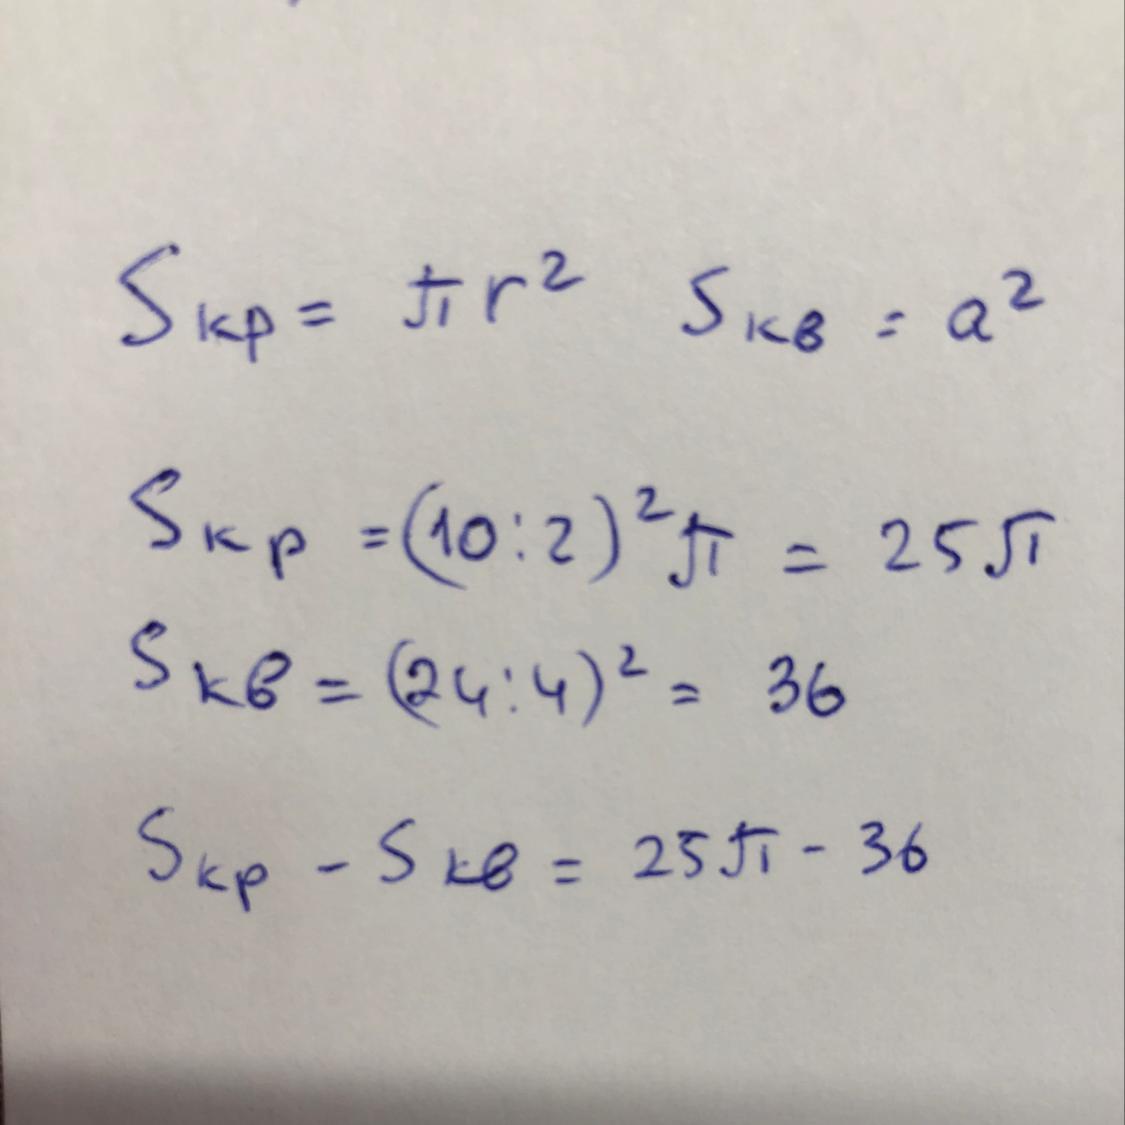 Sкр = πr² Sкв = a²
Sкр = (10:2)²π = 25π
Sкв = (24:4)² = 36
Sкр - Sкв = 25π - 36